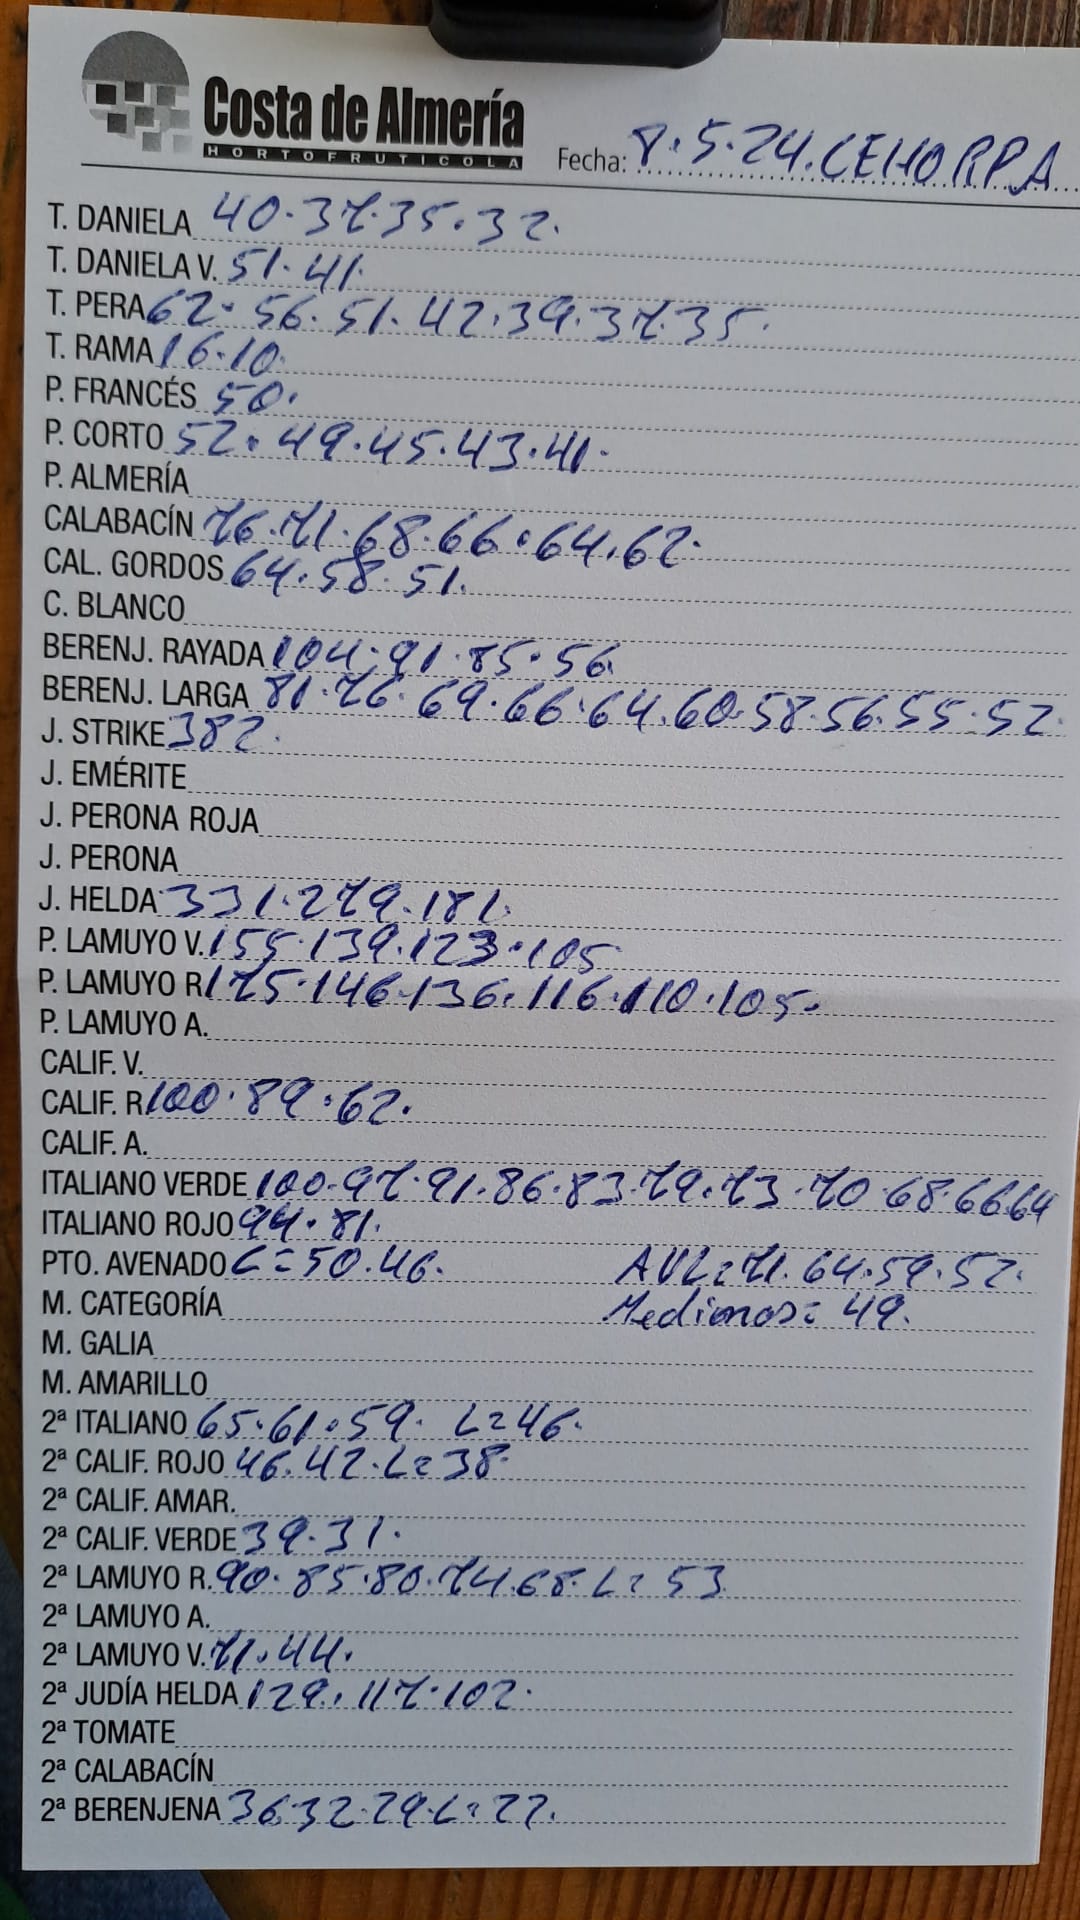 Costa de Almería
HORTOFRUTICOLA
Fecha: 8.5.24.CEHORPA
T. DANIELA 40.37.35.32.
T. DANIELA V. 51.41.
T. PERA 62.56.51.42.39.37.35.
T. RAMA 16.10.
P. FRANCÉS 50.
P. CORTO 52.49.45.43.41.
P. ALMERÍA
CALABACÍN 76.71.68.66.64.62.
CAL. GORDOS 64.58.51.
C. BLANCO
BERENJ. RAYADA 104.91.85.56.
BERENJ. LARGA 81.76.69.66.64.60.58.56.55.52.
J. STRIKE 382.
J. EMÉRITE
J. PERONA ROJA
J. PERONA
J. HELDA 331.279.181.
P. LAMUYO V. 155.139.123.105
P. LAMUYO R 175.146.136.116.110.105.
P. LAMUYO A.
CALIF. V.
CALIF. R 100.89.62.
CALIF. A.
ITALIANO VERDE 100.97.91.86.83.79.73.70.68.66.64
ITALIANO ROJO 94.81.
PTO. AVENADO L=50.46. AVL=71.64.59.52.
M. CATEGORÍA Medianos=49.
M. GALIA
M. AMARILLO
2ª ITALIANO 65.61.59. L=46.
2ª CALIF. ROJO 46.42.L=38.
2ª CALIF. AMAR.
2ª CALIF. VERDE 39.31.
2ª LAMUYO R. 90.85.80.74.68.L=53
2ª LAMUYO A.
2ª LAMUYO V. 71.44.
2ª JUDÍA HELDA 129.117.102.
2ª TOMATE
2ª CALABACÍN
2ª BERENJENA 36.32.29.L=27.